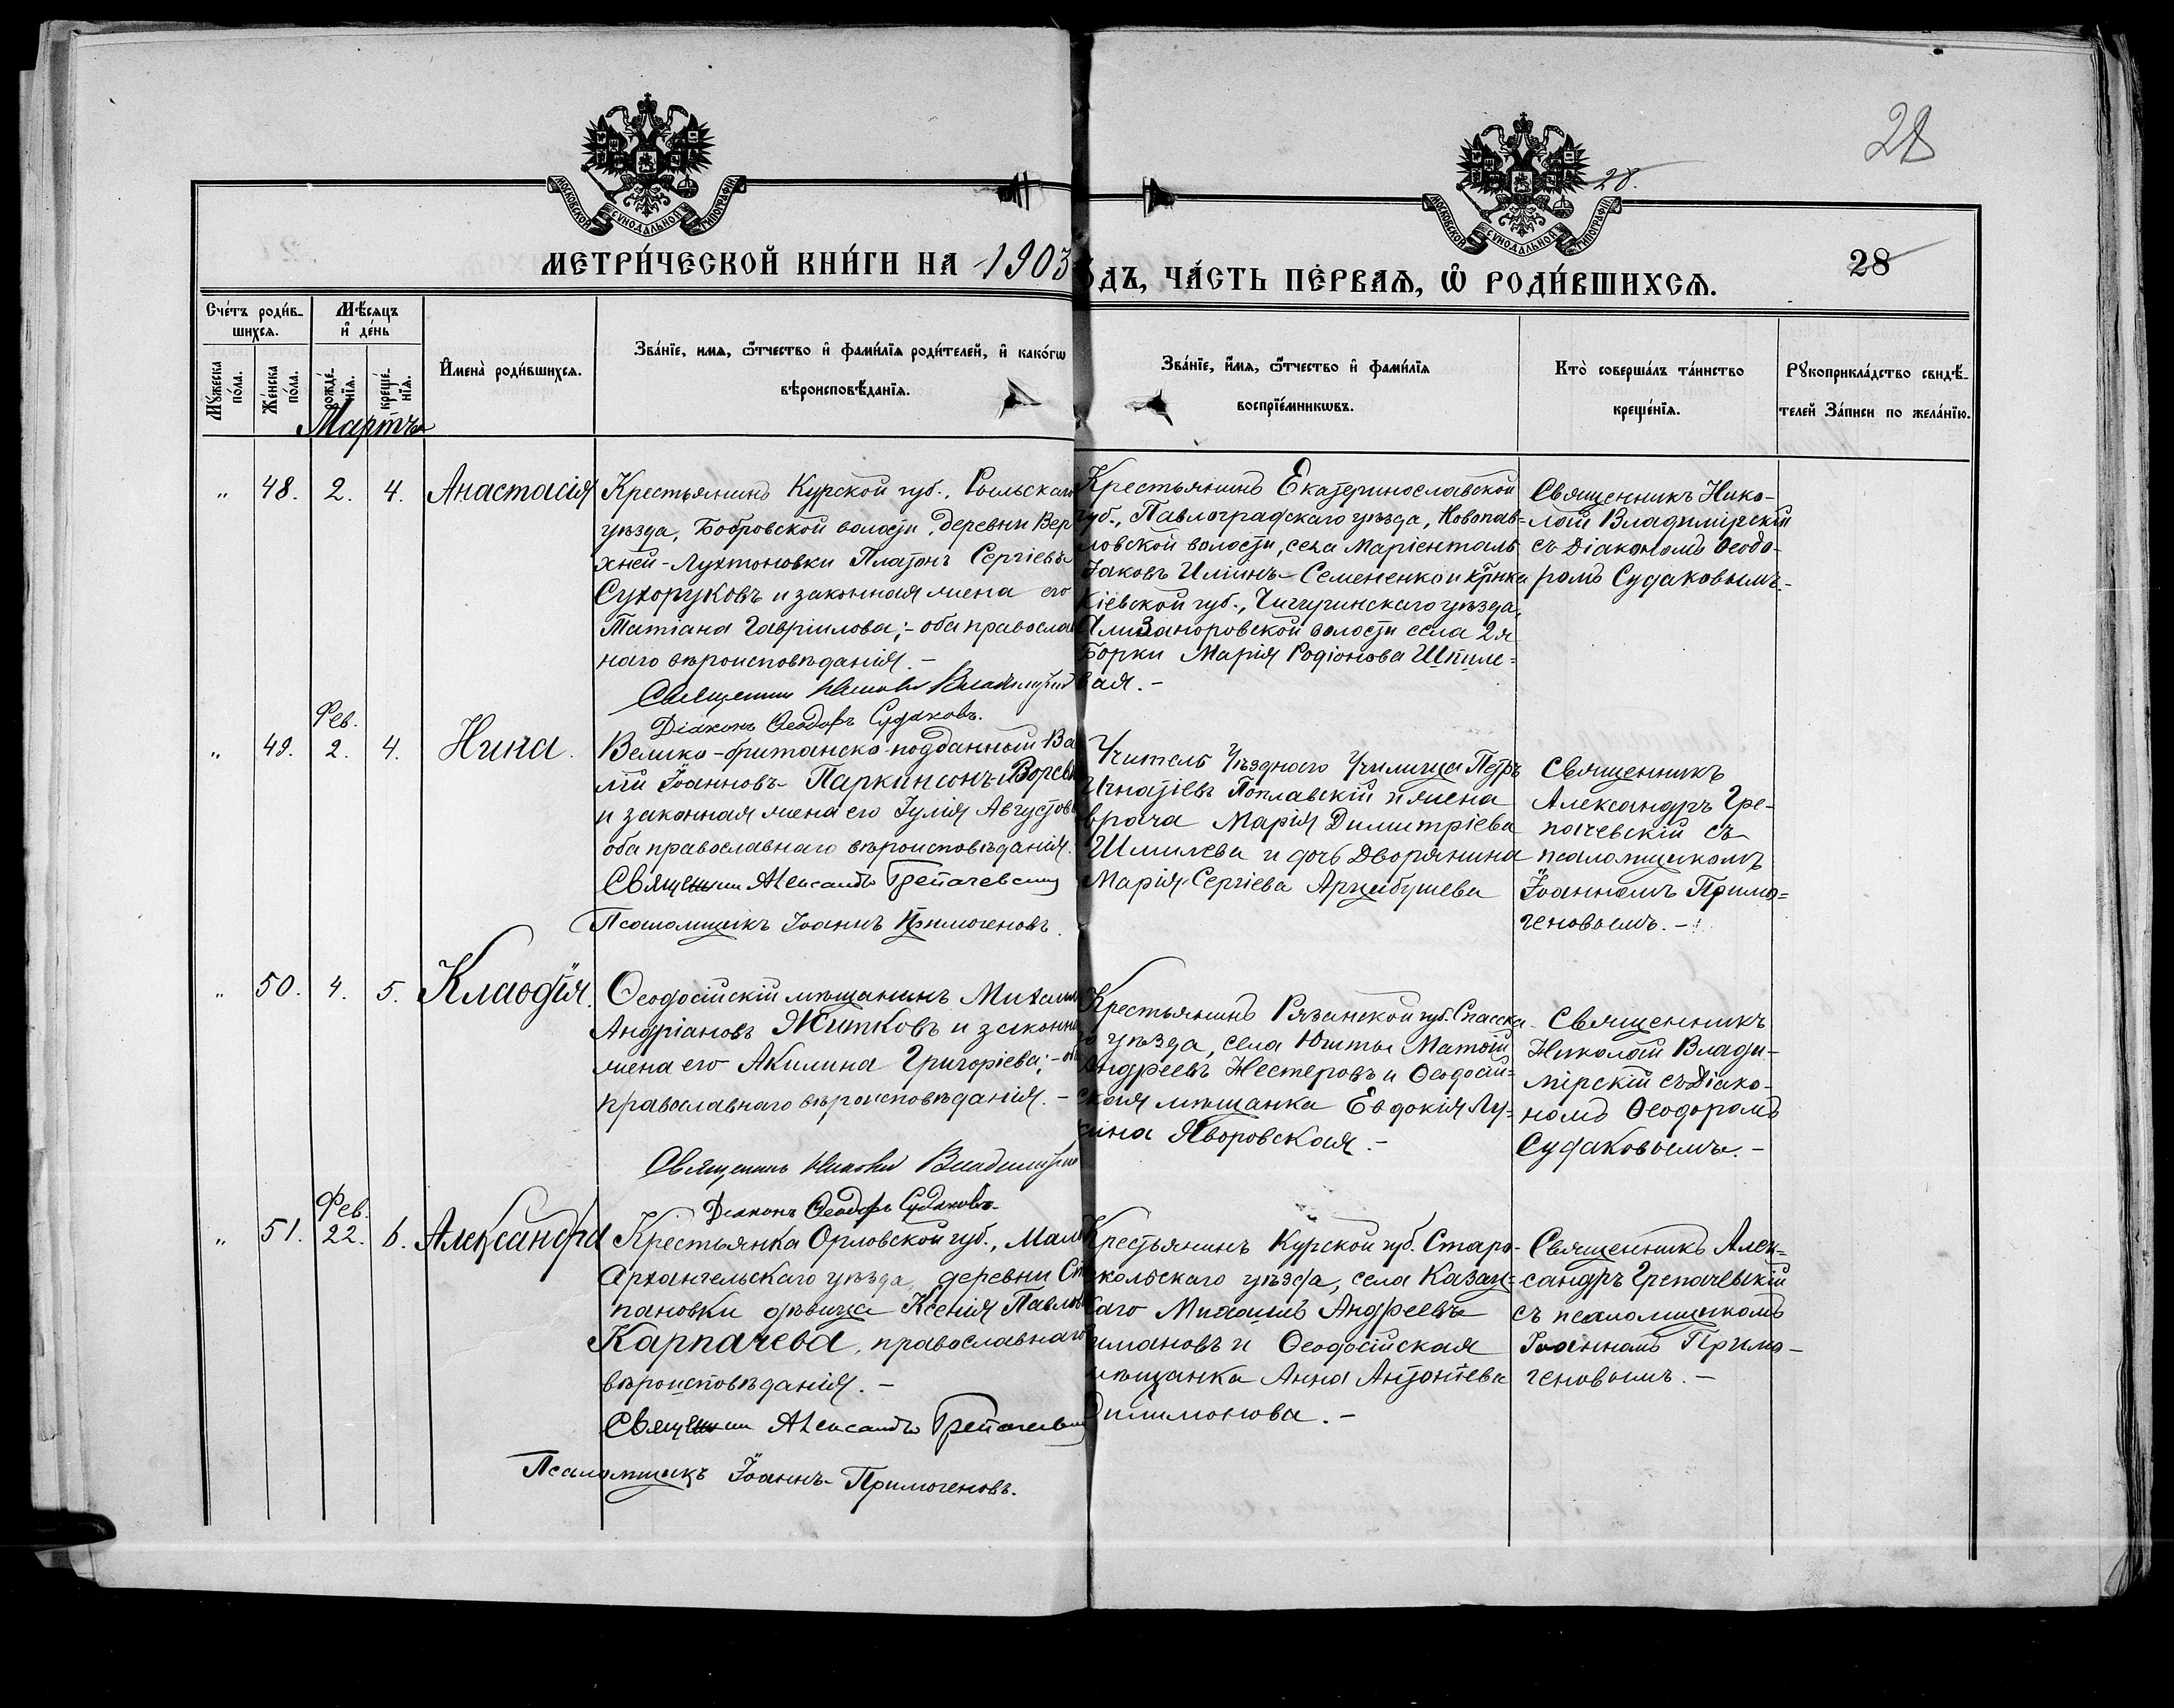 28
28.
МОСКОВСКОЙ СУНОДАЛЬНОЙ ТИПОГРАФІИ
МОСКОВСКОЙ СУНОДАЛЬНОЙ ТИПОГРАФІИ
МЕТРИ́ЧЕСКОЙ КНИ́ГИ НА 1903
ДЪ, ЧА́СТЬ ПЕ́РВАѦ, Ѿ РОДИ́ВШИХСѦ.
28
Сче́тъ роди́в-
шихсѧ.
Мꙋжеска по́ла.
Же́нска по́ла.
Мѣ́сѧцъ
и де́нь
рожде́-
нїѧ.
креще́-
нїѧ.
Имена̀ роди́вшихсѧ.
Зва́нїе, имѧ, ѻ҆́тчество и фами́лїѧ роди́телей, и како́гѡ
вѣроисповѣ́данїѧ.
Зва́нїе, и́мѧ, ѻ҆́тчество и фами́лїѧ
воспрїе́мникѡвъ.
Кто̀ соверша́лъ та́инство
креще́нїѧ.
Рꙋкоприкла́дство свидѣ́-
телей За́писи по жела́нїю.
Мартъ
„ 48. 2. 4. Анастасія
Крестьянинъ Курской губ., Рыльскаго
уѣзда, Бобровской волости, деревни Вер
хней-Лухтоновки Платонъ Сергіевъ
Сухоруковъ и законная жена его
Татіана Гавріилова; - оба православ
наго вѣроисповѣданія. -
Священник Николай Владимірскій
Діаконъ Ѳеодоръ Судаковъ.
Крестьянинъ Екатеринославской
губ., Павлоградскаго уѣзда, Новопав=
ловской волости, села Маріенталь
Іаковъ Иліинъ Семененко и кр-нка
Кіевской губ., Чигиринскаго уѣзда,
волости села 2я
Борки Марія Родіонова Шпиле=
вая. -
Священникъ Нико-
лай Владимірскій
съ Діакономъ Ѳеодо-
ромъ Судаковымъ.
Фев.
„ 49. 2. 4. Нина.
Велико-британско-подданный Ва
лій Іоанновъ Паркинсонъ-
и законная жена его Іулія Августова
оба православнаго вѣроисповѣданія.
Священник Александръ Грепачевскій
Псаломщикъ Іоаннъ Примогеновъ.
Учитель Уѣзднаго Училища Петръ
Игнатіевъ Поплавскій и жена
врача Марія Димитріева
Шмилева и дочь Дворянина
Марія Сергіева Арцыбушева
Священникъ
Александръ Гре-
пачевскій съ
псаломщикомъ
Іоанномъ Примо=
геновымъ. -
„ 50. 4. 5. Клавдія.
Ѳеодосійскій мѣщанинъ Михаилъ
Андріановъ Житковъ и законная
жена его Акилина Григоріева; - оба
православнаго вѣроисповѣданія. -
Священникъ Николай Владимірскій
Діаконъ Ѳеодоръ Судаковъ.
Крестьянинъ Рязанской губ. Спасска
го уѣзда, села Ижты Матѳій
Андреевъ Нестеровъ и Ѳеодосій=
ская мѣщанка Евдокія Лу=
кина Яворовская. -
Священникъ
Николай Влади-
мірскій съ Діако-
номъ Ѳеодоромъ
Судаковымъ. -
Фев.
„ 51. 22. 6. Александра
Крестьянка Орловской губ., Мало
Архангельскаго уѣзда, деревни Сте
пановки дѣвица Ксенія Павлова
Карпачева, православнаго
вѣроисповѣданія. -
Священник Александръ Грепачевскій
Псаломщикъ Іоаннъ Примогеновъ.
Крестьянинъ Курской губ. Старо-
окольскаго уѣзда, села Казац-
каго Михаилъ Андреевъ
имановъ и Ѳеодосійская
мѣщанка Анна Антоніева
Филимонова. -
Священникъ Алек=
сандръ Грепачевскій
съ псаломщикомъ
Іоанномъ Примо-
геновымъ. -